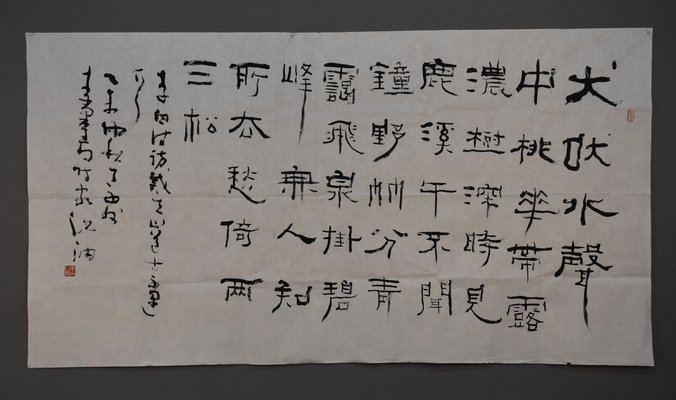 犬吠水聲
中桃華帶露
濃樹深時見
鹿溪午不聞
鐘野竹分青
靄飛泉掛碧
峰無人知
所去愁倚兩
三松
李白詩訪戴天山道士不遇
乙未仲秋
時客江油